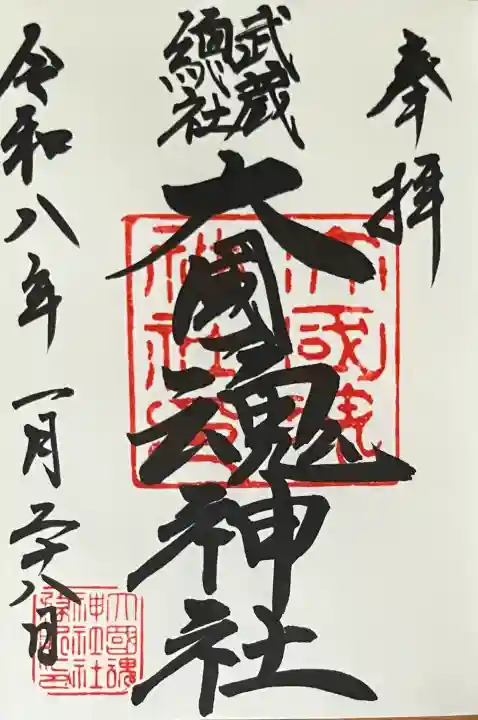 奉拝
武蔵
總社
大國魂神社
令和八年 一月二十八日
大國魂
神社社